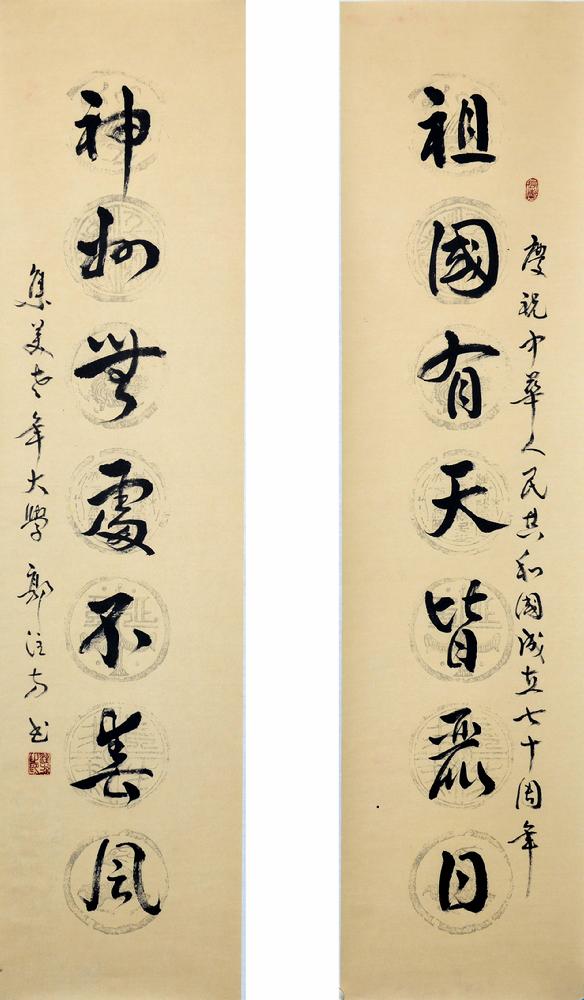 慶祝中華人民共和國成立七十周年
祖國有天皆麗日
神州無處不春風
集美老年大學 郭注南书